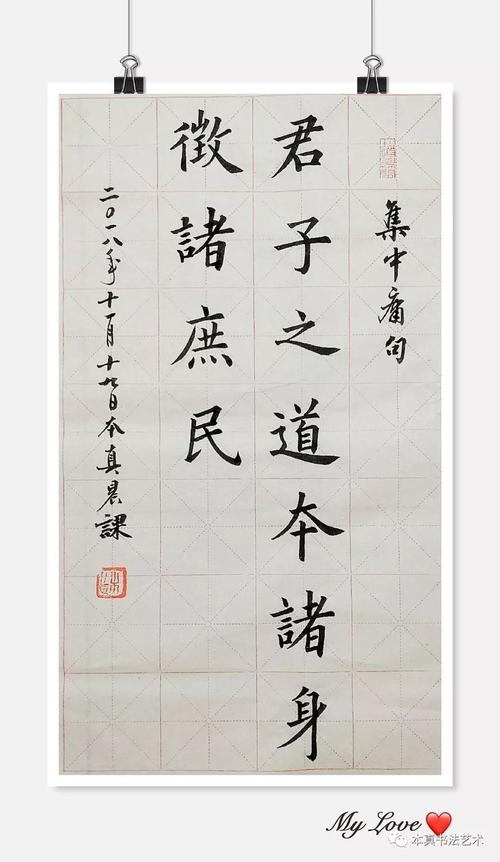 集中庸句
君子之道本諸身
徵諸庶民
二〇一八年十一月十九日本真晨課
My Love❤
本真书法艺术